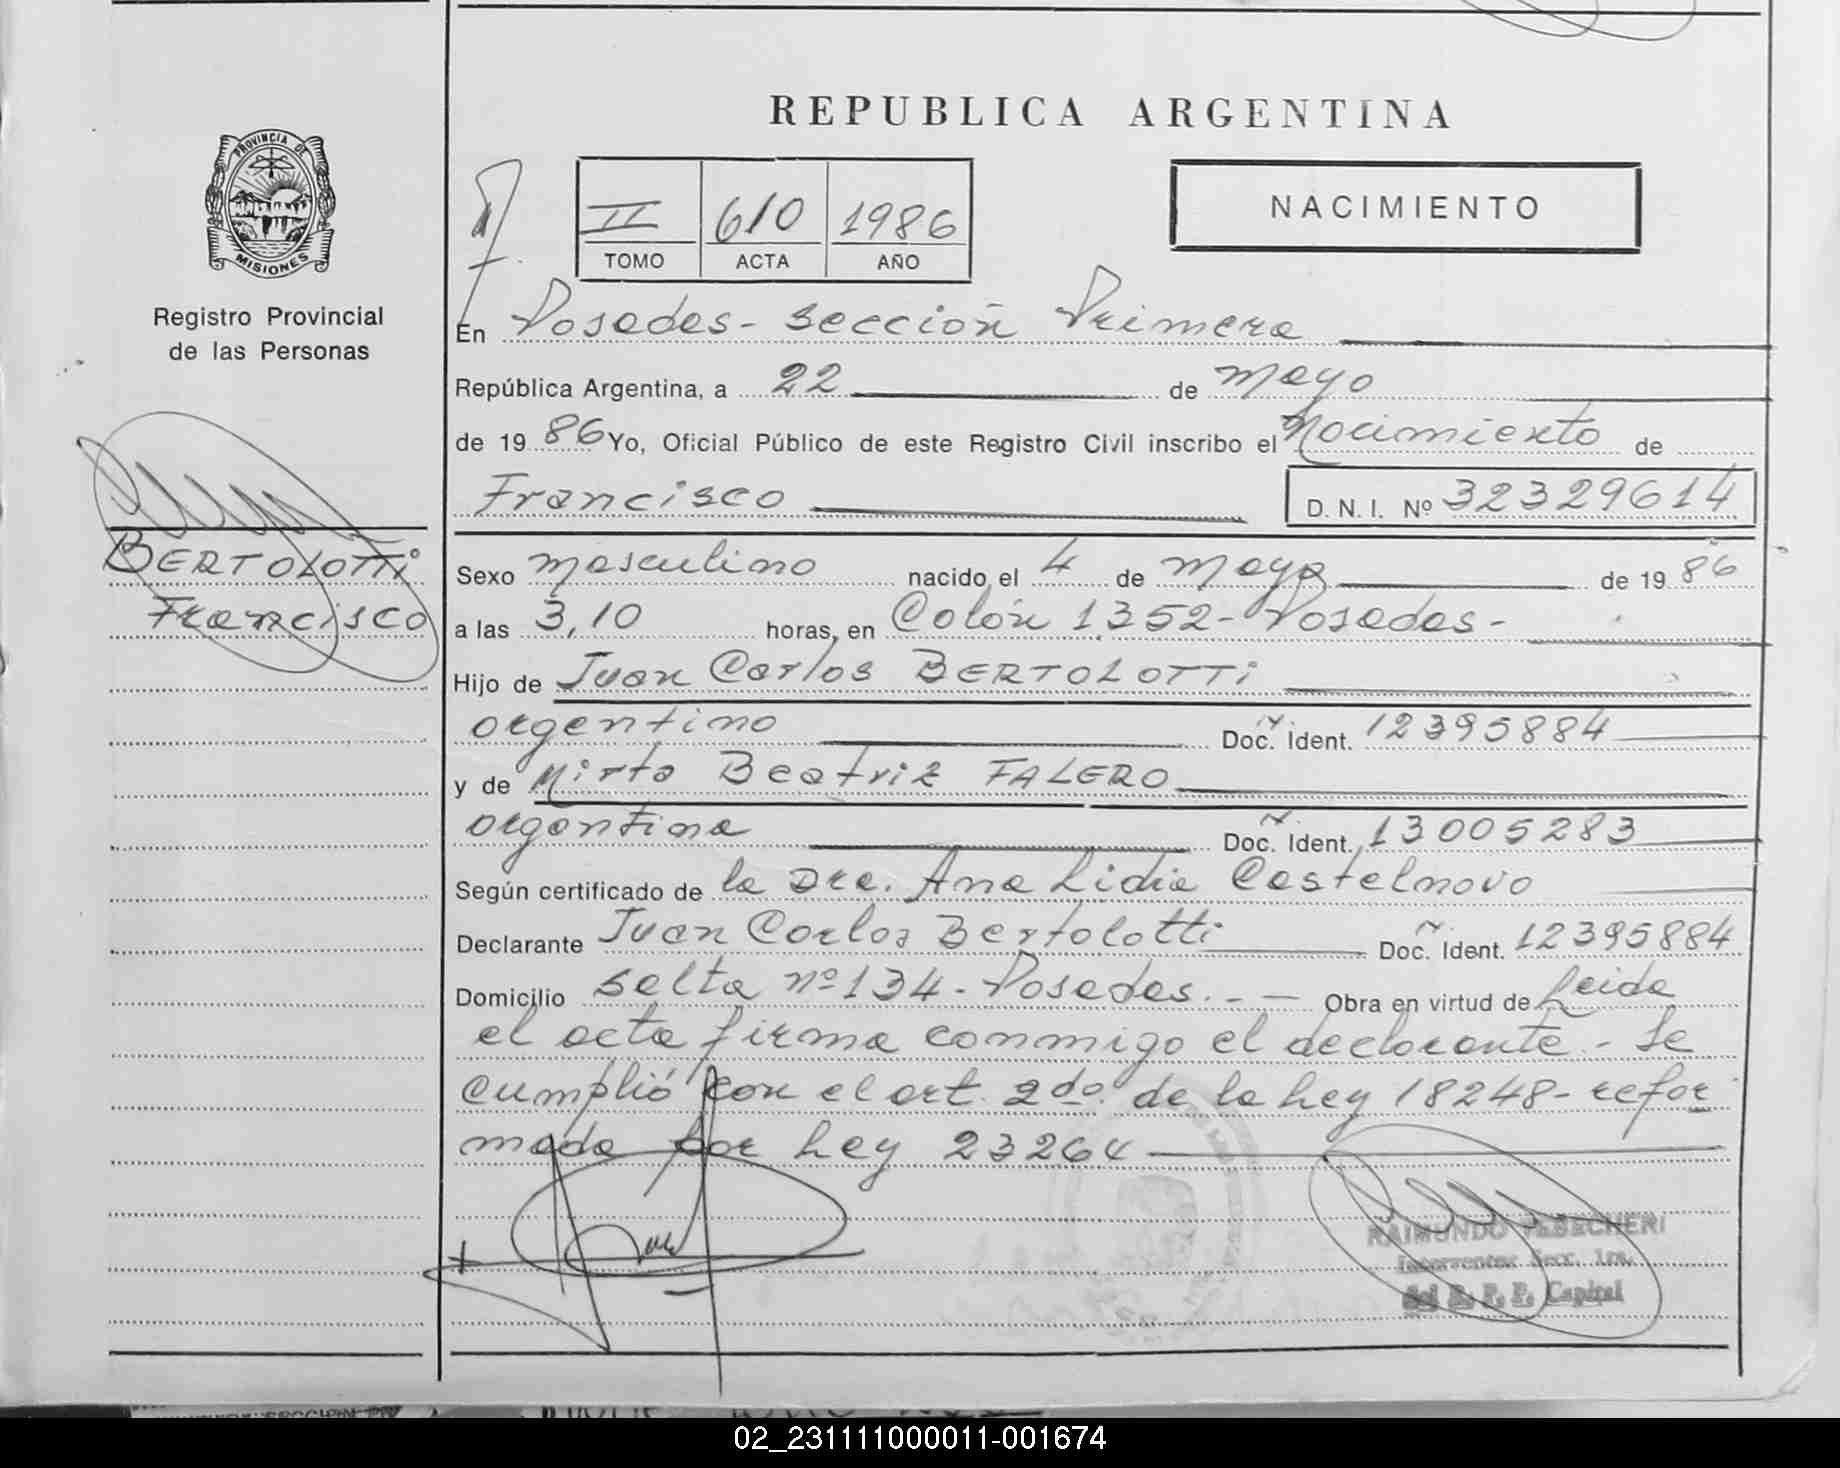 REPUBLICA ARGENTINA
PROVINCIA DE
MISIONES
Registro Provincial
de las Personas
II 610 1986
TOMO ACTA AÑO
NACIMIENTO
En Posadas - Sección Primera
República Argentina, a 22 de mayo
de 1986 Yo, Oficial Público de este Registro Civil inscribo el Nacimiento de
Francisco D.N.I. Nº 32329614
BERTOLOTTI
Francisco
Sexo masculino nacido el 4 de mayo de 1986
a las 3,10 horas, en Colón 1352 - Posadas -
Hijo de Juan Carlos BERTOLOTTi
argentino Doc. Ident. 12395884
y de Mirta Beatriz FALERO
argentina Doc. Ident. 13005283
Según certificado de la Dra. Ana Lidia Castelnovo
Declarante Juan Carlos Bertolotti Doc. Ident. 12395884
Domicilio Salta nº 134 - Posadas. - - Obra en virtud de Leida
el acta firma conmmigo el declarante. - Se
cumplió con el art. 2do. de la Ley 18248 - refor
mada por Ley 23264
RAIMUNDO
Secc. 1ra.
Capital
02_231111000011-001674